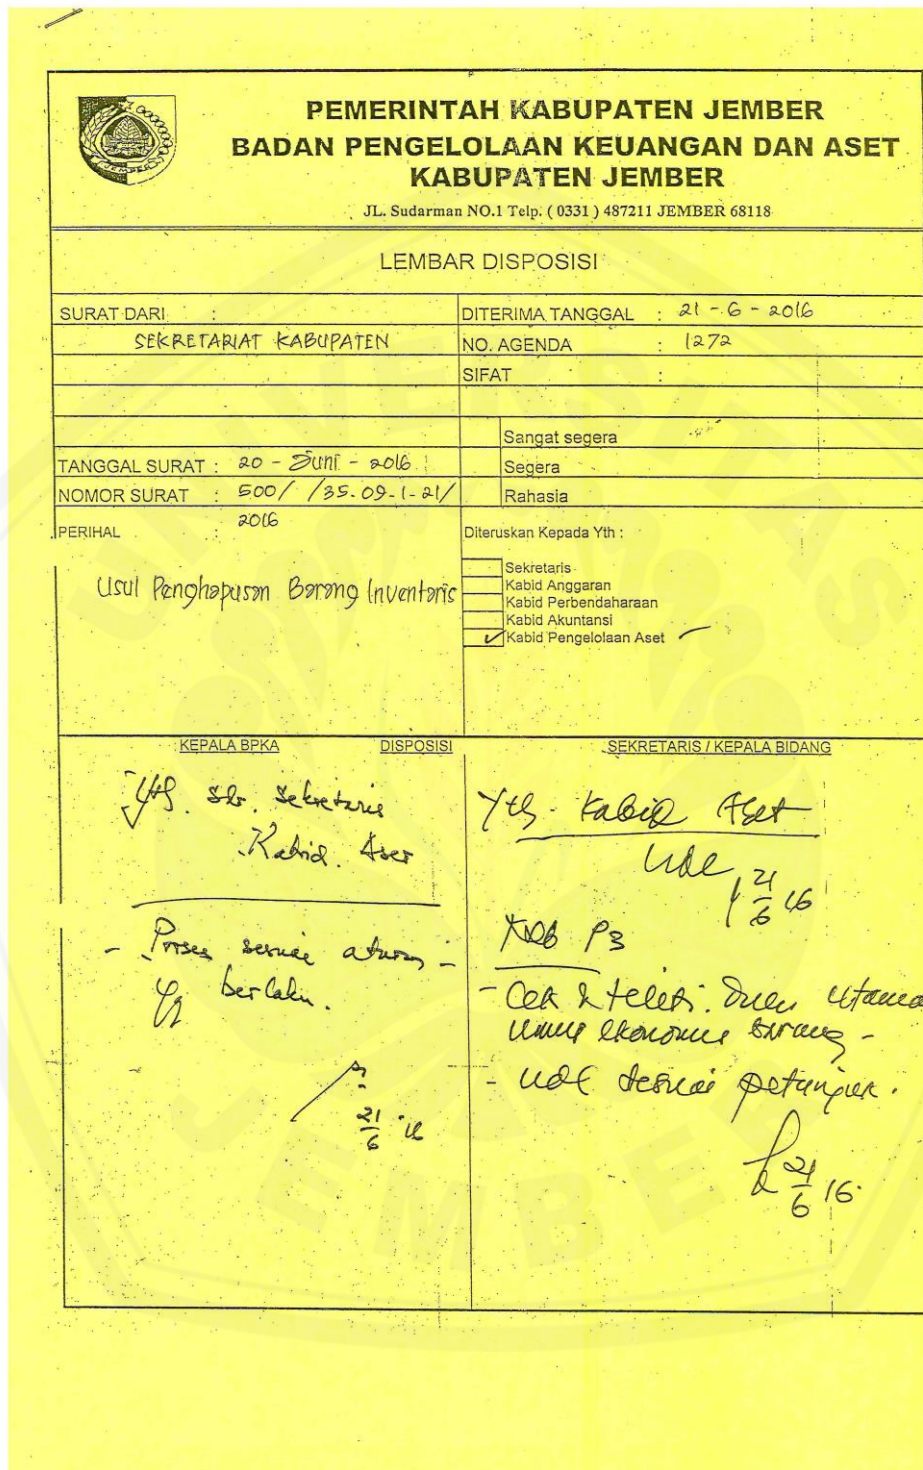 PEMERINTAH KABUPATEN JEMBER
BADAN PENGELOLAAN KEUANGAN DAN ASET
KABUPATEN JEMBER
JL. Sudarman NO.1 Telp. ( 0331 ) 487211 JEMBER 68118
LEMBAR DISPOSISI
SURAT DARI :
SEKRETARIAT KABUPATEN
DITERIMA TANGGAL : 21 - 6 - 2016
NO. AGENDA : 1272
SIFAT :
Sangat segera
TANGGAL SURAT : 20 - Juni - 2016
Segera
NOMOR SURAT : 500/ /35.09.1.21/
2016
Rahasia
PERIHAL :
Usul Penghapusan Barang Inventaris
Diteruskan Kepada Yth :
Sekretaris
Kabid Anggaran
Kabid Perbendaharaan
Kabid Akuntansi
✓ Kabid Pengelolaan Aset
KEPALA BPKA DISPOSISI
Yth. sdr. Sekretaris
Kabid. Aset
- Proses sesuai aturan -
yg berlaku.
21/6 '16
SEKRETARIS / KEPALA BIDANG
Yth. Kabid Aset
Udl
21/6 16
- Cek & teliti. Dulu utama
umur ekonomis barang -
- udl sesuai petunjuk.
21/6 16.
UNIVERSITAS
JEMBER